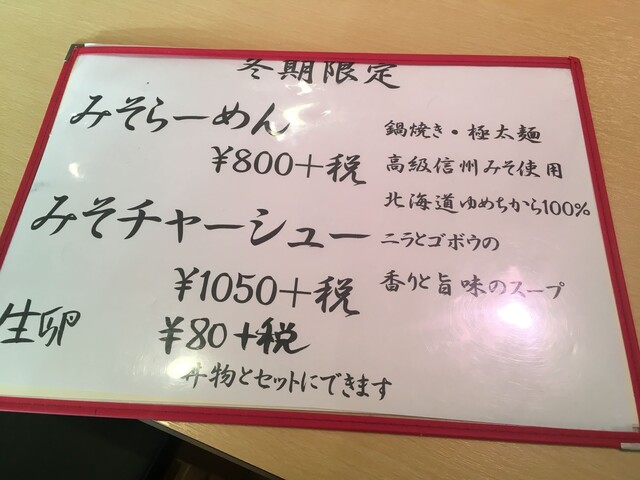 冬期限定
みそらーめん
¥800+税
みそチャーシュー
¥1050+税
生卵 ¥80+税
丼物とセットにできます
鍋焼き・極太麺
高級信州みそ使用
北海道ゆめちから100%
ニラとゴボウの
香りと旨味のスープ